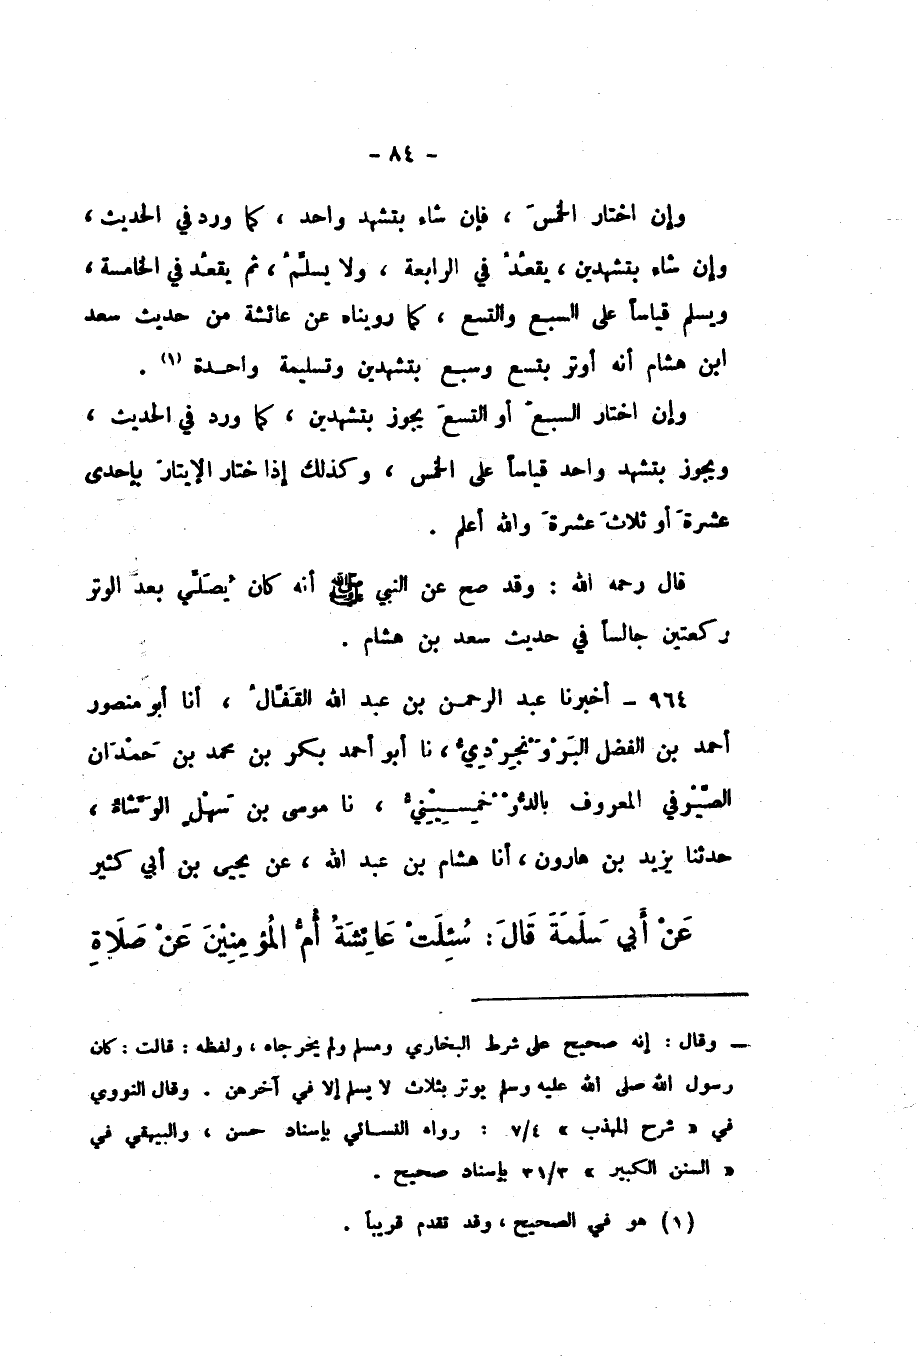 - ٨٤ -
وإن اختار الخمسَ ، فإن شاء بتشهد واحد ، كما ورد في الحديث ،
وإن شاء بتشهدين ، يقعُدُ في الرابعة ، ولا يسلّمُ ، ثم يقعُد في الخامسة ،
ويسلم قياساً على السبع والتسع ، كما رويناه عن عائشة من حديث سعد
ابن هشام أنه أوتر بتسع وسبع بتشهدين وتسليمة واحدة (١) .
وإن اختار السبعَ أو التسعَ يجوز بتشهدين ، كما ورد في الحديث ،
ويجوز بتشهد واحد قياساً على الخمس ، وكذلك إذا ختار الإيتارَ بإحدى
عشرةَ أو ثلاثَ عشرةَ والله أعلم .
قال رحمه الله : وقد صح عن النبي ﷺ أنه كان يُصَلّي بعدَ الوتر
ركعتين جالساً في حديث سعد بن هشام .
٩٦٤ – أخبرنا عبد الرحمن بن عبد الله القَفّالُ ، أنا أبو منصور
أحمد بن الفضل البَرْوَنْجِرْدِيُّ ، نا أبو أحمد بكر بن محمد بن حَمْدَان
الصّيْرفي المعروف بالدُّوخَمسِيْنيُّ ، نا موسى بن سَهْلٍ الوَشّاءُ ،
حدثنا يزيد بن هارون ، أنا هشام بن عبد الله ، عن يحيى بن أبي كثير
عَنْ أَبي سَلَمَةَ قَالَ : سُئِلَتْ عَائِشَةُ أُمُّ المُؤمِنِيْنَ عَنْ صَلَاةِ
ـ وقال : إنه صحيح على شرط البخاري ومسلم ولم يخرجاه ، ولفظه : قالت : كان
رسول الله صلى الله عليه وسلم يوتر بثلاث لا يسلم إلا في آخرهن . وقال النووي
في « شرح المهذب » ٧/٤ : رواه النسائي بإسناد حسن ، والبيهقي في
« السنن الكبير » ٣١/٣ بإسناد صحيح .
(١) هو في الصحيح ، وقد تقدم قريباً .